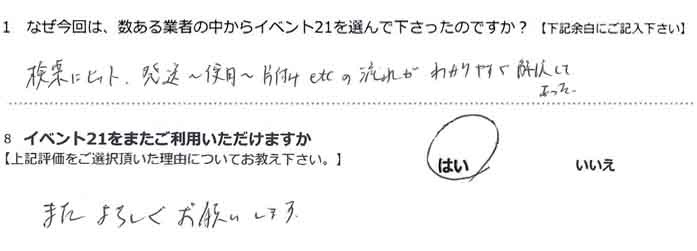 1 なぜ今回は、数ある業者の中からイベント21を選んで下さったのですか?【下記余白にご記入下さい】
検索にヒット、発送～使用～片付け etc の流れが わかりやすく 解説して
あった.
8 イベント21をまたご利用いただけますか
【上記評価をご選択頂いた理由についてお教え下さい。】
はい いいえ
また よろしく お願いします.